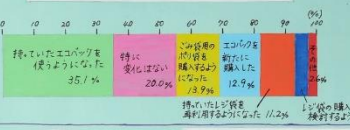 (%)
60 70 80 90 100
持っていたエコバックを
使うようになった
35.1%
特に
変化はない
20.0%
ごみ袋用の
ポリ袋を
購入するよう
になった
13.9%
エコバックを
新たに
購入した
12.9%
その他
2.6%
持っていたレジ袋を
再利用するようになった 11.2%
レジ袋の購入
検討するよう